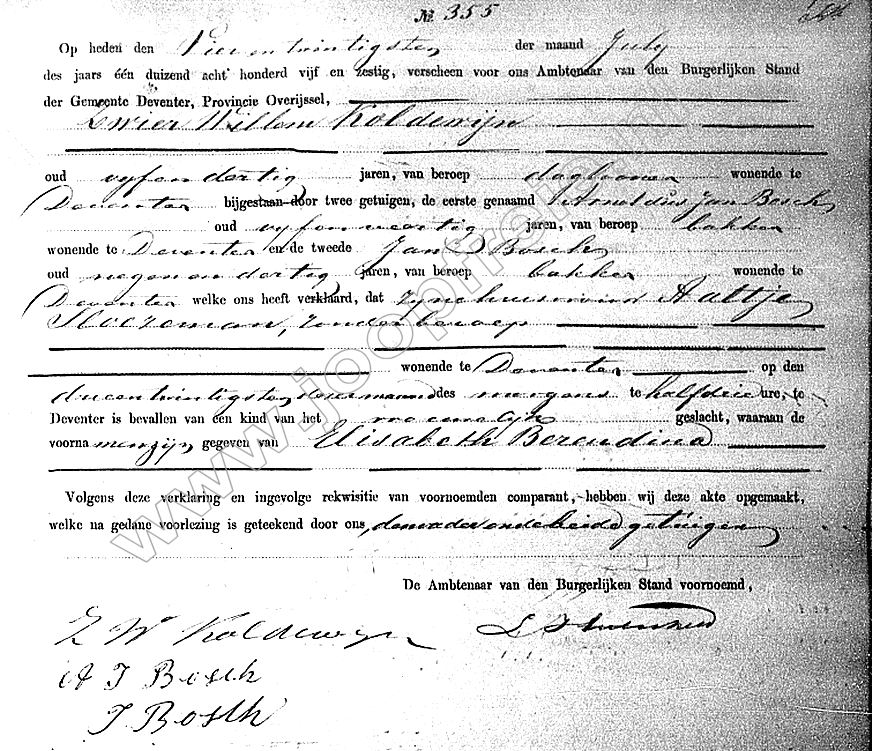 № 355
Op heden den Vierentwintigsten der maand July
des jaars één duizend acht honderd vijf en zestig, verscheen voor ons Ambtenaar van den Burgerlijken Stand
der Gemeente Deventer, Provincie Overijssel,
Zwier Willem Koldewijn
oud vyfendertig jaren, van beroep daglooner wonende te
Deventer bijgestaan door twee getuigen, de eerste genaamd Arnoldus Jan Bosch
oud vyfenveertig jaren, van beroep bakker
wonende te Deventer en de tweede Jan Bosch
oud negenendertig jaren, van beroep bakker wonende te
Deventer welke ons heeft verklaard, dat zyne huisvrouw Aaltje
zonder beroep
wonende te Deventer op den
drieentwintigsten dezer maand des morgens te half drie ure, te
Deventer is bevallen van een kind van het geslacht, waaraan de
voornamen zijn gegeven van Elisabeth Berendina
Volgens deze verklaring en ingevolge rekwisitie van voornoemden comparant, hebben wij deze akte opgemaakt,
welke na gedane voorlezing is geteekend door ons, den vader en de beide getuigen
De Ambtenaar van den Burgerlijken Stand voornoemd,
Z W Koldewyn
A J Bosch
J Bosch
www.joopfrei